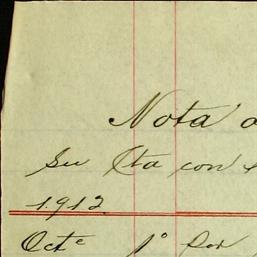 Nota
Su Cta con
1912
Octe 1º Por